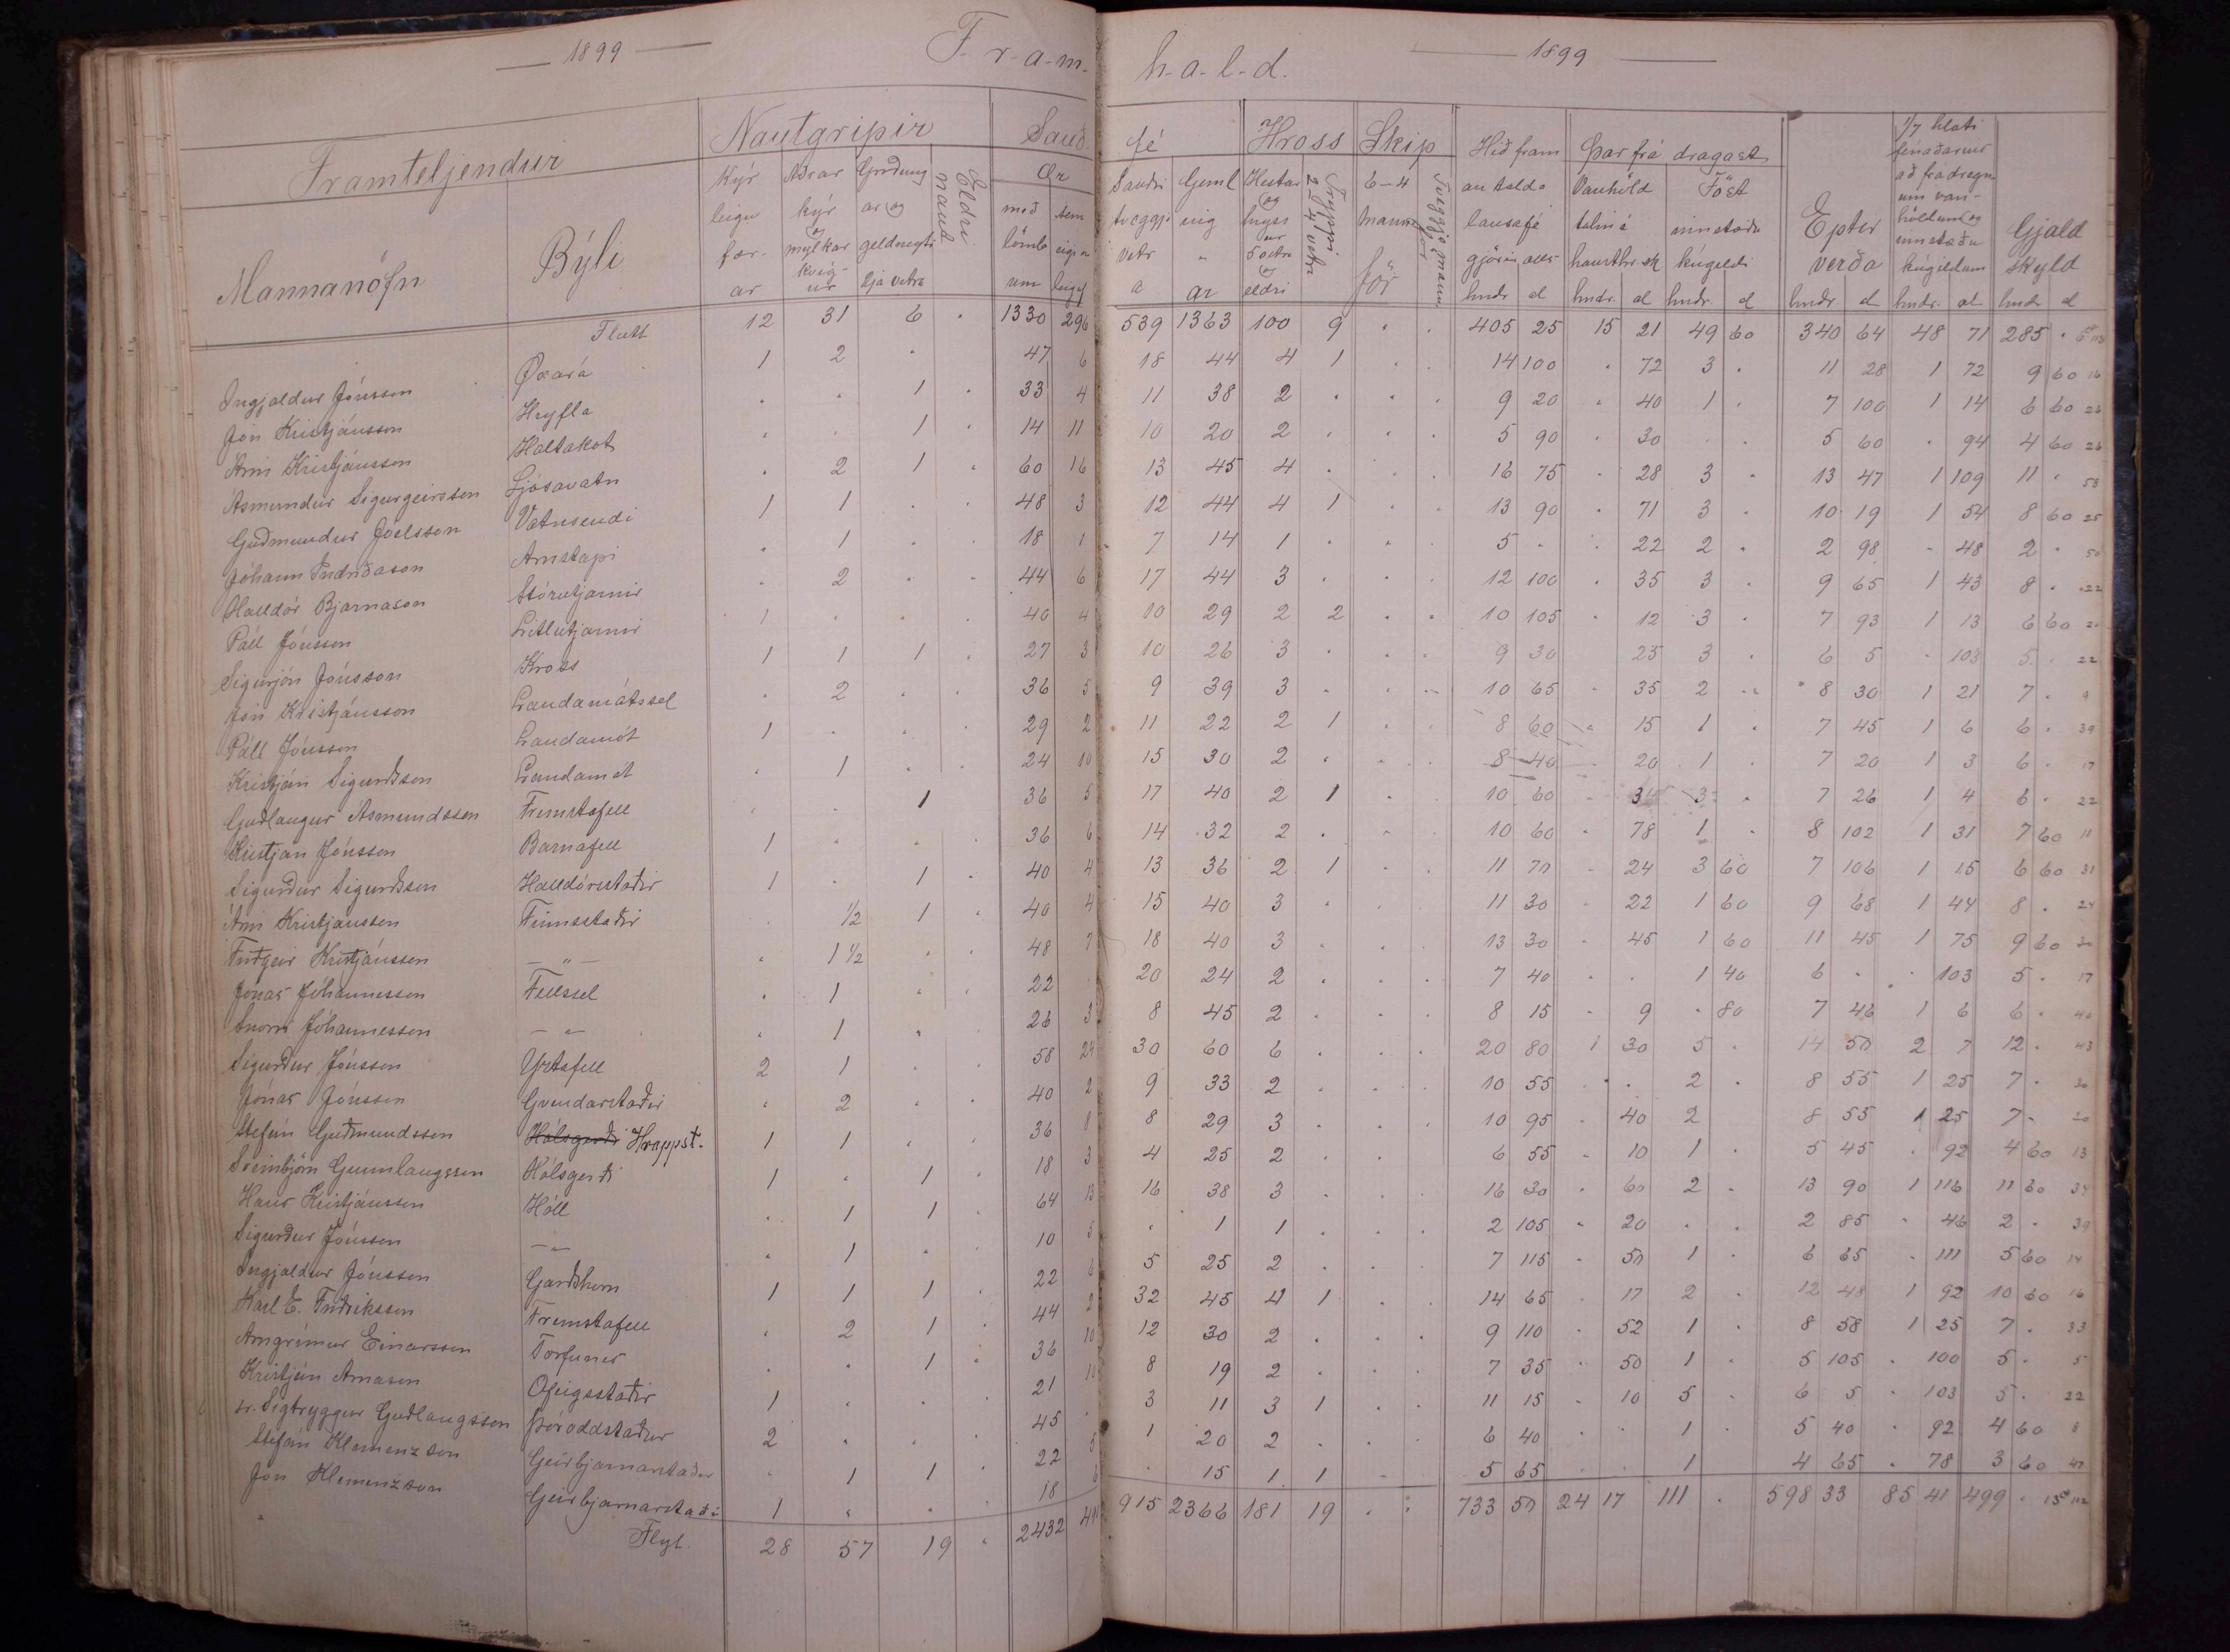 1899 F-r-a-m-
h-a-l-d. 1899
Framteljendur Nautgripir Sauð-
fé Hross Skip Hið fram Þar frá dragast 1/7 hluti
Mannanöfn Býli Kýr leigu fær- ar Aðrar kýr og mylkar kvíg- ur Griðung ar og geldneyti tvævetra Eldri naut Ær með lömb um
Sauðir tvæggja vetr a Geml ing ar Hestar og hryss ur 5 vetra og eldri Tryppi 2-4 vetra 6-4 manna för Tveggja manna för
an talda lausafé gjörir alls hndr. al Vanhöld hndr. al Föst innstæðu kúgildi hndr. al Eptir verða hndr. al fénaðarins að frádregn um van- höldum og innstæðu kúgildum hndr. al Gjald skyld hndr. al
Flutt 12 31 6 . 1330 296 539 1363 100 9 . . 405 25 15 21 49 60 340 64 48 71 285 .
Ingjaldur Jónsson Øxará 1 2 . 47 6 18 44 4 1 . . 14 100 . 72 3 . 11 28 1 72 9 60 16
Jón Kristjánsson Hryfla . . 1 . 33 4 11 38 2 . . . 9 20 . 40 1 . 7 100 1 14 6 60 26
Árni Kristjánsson Holtakot . . 1 . 14 11 10 20 2 . . . 5 90 . 30 . . 5 60 . 94 4 60 26
Ásmundur Sigurgeirsson Ljósavatn . 2 1 . 60 16 13 45 4 . . . 16 75 . 28 3 . 13 47 1 109 11 . 58
Guðmundur Jóelsson Vatnsendi 1 1 . . 48 3 12 44 4 1 . . 13 90 . 71 3 . 10 19 1 54 8 60 25
Jóhann Indriðason Arnstapi . 1 . . 18 1 7 14 1 . . . 5 . . 22 2 . 2 98 . 48 2 . 50
Halldór Bjarnason Stórutjarnir . 2 . . 44 6 17 44 3 . . . 12 100 . 35 3 . 9 65 1 43 8 . 22
Páll Jónsson Litlutjarnir 1 . . . 40 4 10 29 2 2 . . 10 105 . 12 3 . 7 93 1 13 6 60
Sigurjón Jónsson Kross 1 1 1 . 27 3 10 26 3 . . . 9 30 25 3 . 6 5 . 103 5 . 22
Jón Kristjánsson Landamótssel . 2 . . 36 5 9 39 3 . . . 10 65 . 35 2 . 8 30 1 21 7 . 9
Páll Jónsson Landamót 1 . . 29 2 11 22 2 1 . . 8 60 . 15 1 . 7 45 1 6 6 . 39
Kristján Sigurðsson Landamót . 1 . . 24 10 15 30 2 . . . 8 40 . 20 1 . 7 20 1 3 6 . 17
Guðlaugur Ásmundsson Fremstafell . . 1 36 5 17 40 2 1 . . 10 60 . 34 3 . 7 26 1 4 6 . 22
Kristján Jónsson Barnafell 1 . . . 36 6 14 32 2 . . 10 60 . 78 1 . 8 102 1 31 7 60 11
Sigurður Sigurðsson Halldórsstaðir 1 . 1 . 40 4 13 36 2 1 . . 11 70 . 24 3 60 7 106 1 15 6 60 31
Árni Kristjánsson Finnsstaðir . 1/2 1 . 40 4 15 40 3 . . . 11 30 . 22 1 60 9 68 1 44 8 . 24
Friðgeir Kristjánsson — " — . 1 1/2 . . 48 7 18 40 3 . . . 13 30 . 45 1 60 11 45 1 75 9 60
Jónas Jóhannesson Fellssel . 1 . . 22 20 24 2 . . . 7 40 . . 1 40 6 . . 103 5 . 17
Snorri Jóhannesson — " . 1 . 26 3 8 45 2 . . . 8 15 . 9 . 80 7 46 1 6 6 .
Sigurður Jónsson Yztafell 2 1 . . 58 24 30 60 6 . . . 20 80 1 30 5 . 14 50 2 7 12 . 43
Jónas Jónsson Gvendarstaðir . 2 . . 40 2 9 33 2 . . . 10 55 . . 2 . 8 55 1 25 7 .
Stefán Guðmundsson Hálsgerði Hrappst. 1 1 . . 36 8 8 29 3 . . . 10 95 . 40 2 8 55 1 25 7 .
Sveinbjörn Gunnlaugsson Hálsgerði 1 . 1 . 18 3 4 25 2 . . 6 55 . 10 1 . 5 45 . 92 4 60 13
Hans Kristjánsson Hóll . 1 1 . 64 13 16 38 3 . . . 16 30 . 60 2 . 13 90 1 116 11 60 34
Sigurður Jónsson — " . 1 . . 10 5 . 1 1 . . . 2 105 . 20 . . 2 85 . 46 2 . 39
Ingjaldur Jónsson Garðshorn 1 1 1 . 22 6 5 25 2 . . . 7 115 . 50 1 . 6 65 . 111 5 60 14
Karl E. Friðriksson Fremstafell . 2 1 . 44 2 32 45 4 1 . . 14 65 . 17 2 . 12 48 1 92 10 60 16
Arngrímur Einarsson Torfunes . . 1 . 36 10 12 30 2 . . . 9 110 . 52 1 . 8 58 1 25 7 . 33
Kristján Árnason Ófeigsstaðir 1 . . . 21 10 8 19 2 . . . 7 35 . 50 1 . 5 105 . 100 5 . 5
sr. Sigtryggur Guðlaugsson Þóroddstaður 2 . . . 45 . 3 11 3 1 . . 11 15 . 10 5 . 6 5 . 103 5 . 22
Stefán Klemenzson Geirbjarnarstaðir . 1 1 . 22 5 1 20 2 . . . 6 40 . . 1 . 5 40 . 92 4 60 8
Jón Klemenzson Geirbjarnarstaði 1 . . . 18 6 . 15 1 1 . . 5 65 . . 1 4 65 . 78 3 60 47
Flyt. 28 57 19 . 2432 915 2366 181 19 . . 733 50 24 17 111 . 598 33 85 41 499 .